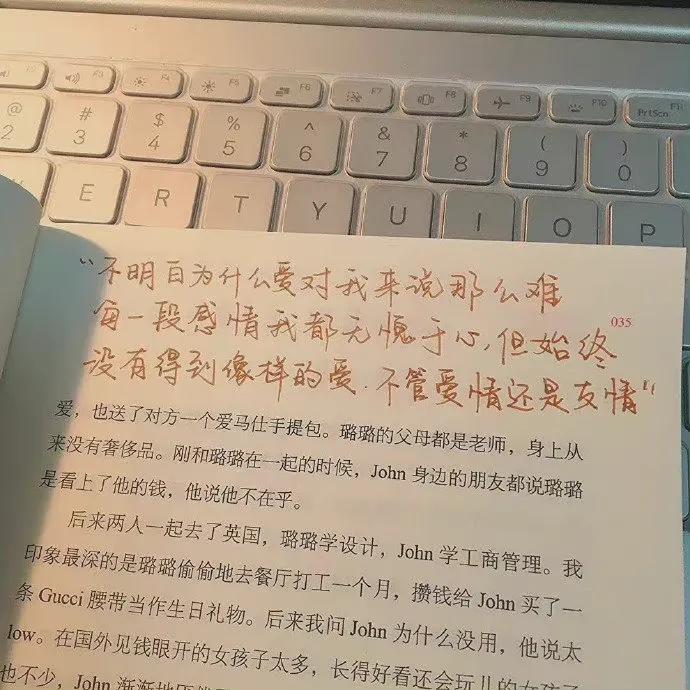 F3 F4 F5 F6 F7 F8 F9 F10 PrtScn F11
@ # $ % ^ & * ( )
2 3 4 5 6 7 8 9 0
E R T Y U I O P
“不明白为什么爱对我来说那么难
每一段感情我都无愧于心,但始终
没有得到像样的爱.不管爱情还是友情”
035
爱，也送了对方一个爱马仕手提包。璐璐的父母都是老师，身上从
来没有奢侈品。刚和璐璐在一起的时候，John 身边的朋友都说璐璐
是看上了他的钱，他说他不在乎。
后来两人一起去了英国，璐璐学设计，John 学工商管理。我
印象最深的是璐璐偷偷地去餐厅打工一个月，攒钱给 John 买了一
条 Gucci 腰带当作生日礼物。后来我问 John 为什么没用，他说太
low。在国外见钱眼开的女孩子太多，长得好看还会玩儿的女孩子
也不少，John 渐渐地